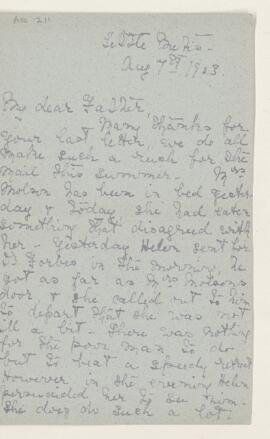 Little Metis -
Aug 7th 1923.
My dear Father,
Many thanks for
your last letter, we do all
make such a rush for the
mail this summer. Mrs
Molson has been in bed yester-
day & today she had eaten
something that disagreed with
her - yesterday Helen sent for
Dr Forbes in the morning, he
got as far as Mrs Molsons
door, & she called out to him
to depart that she was not
ill a bit - There was nothing
for the poor man to do
but to beat a speedy retreat
However, in the evening Helen
persuaded her to see him.
She does do such a lot.